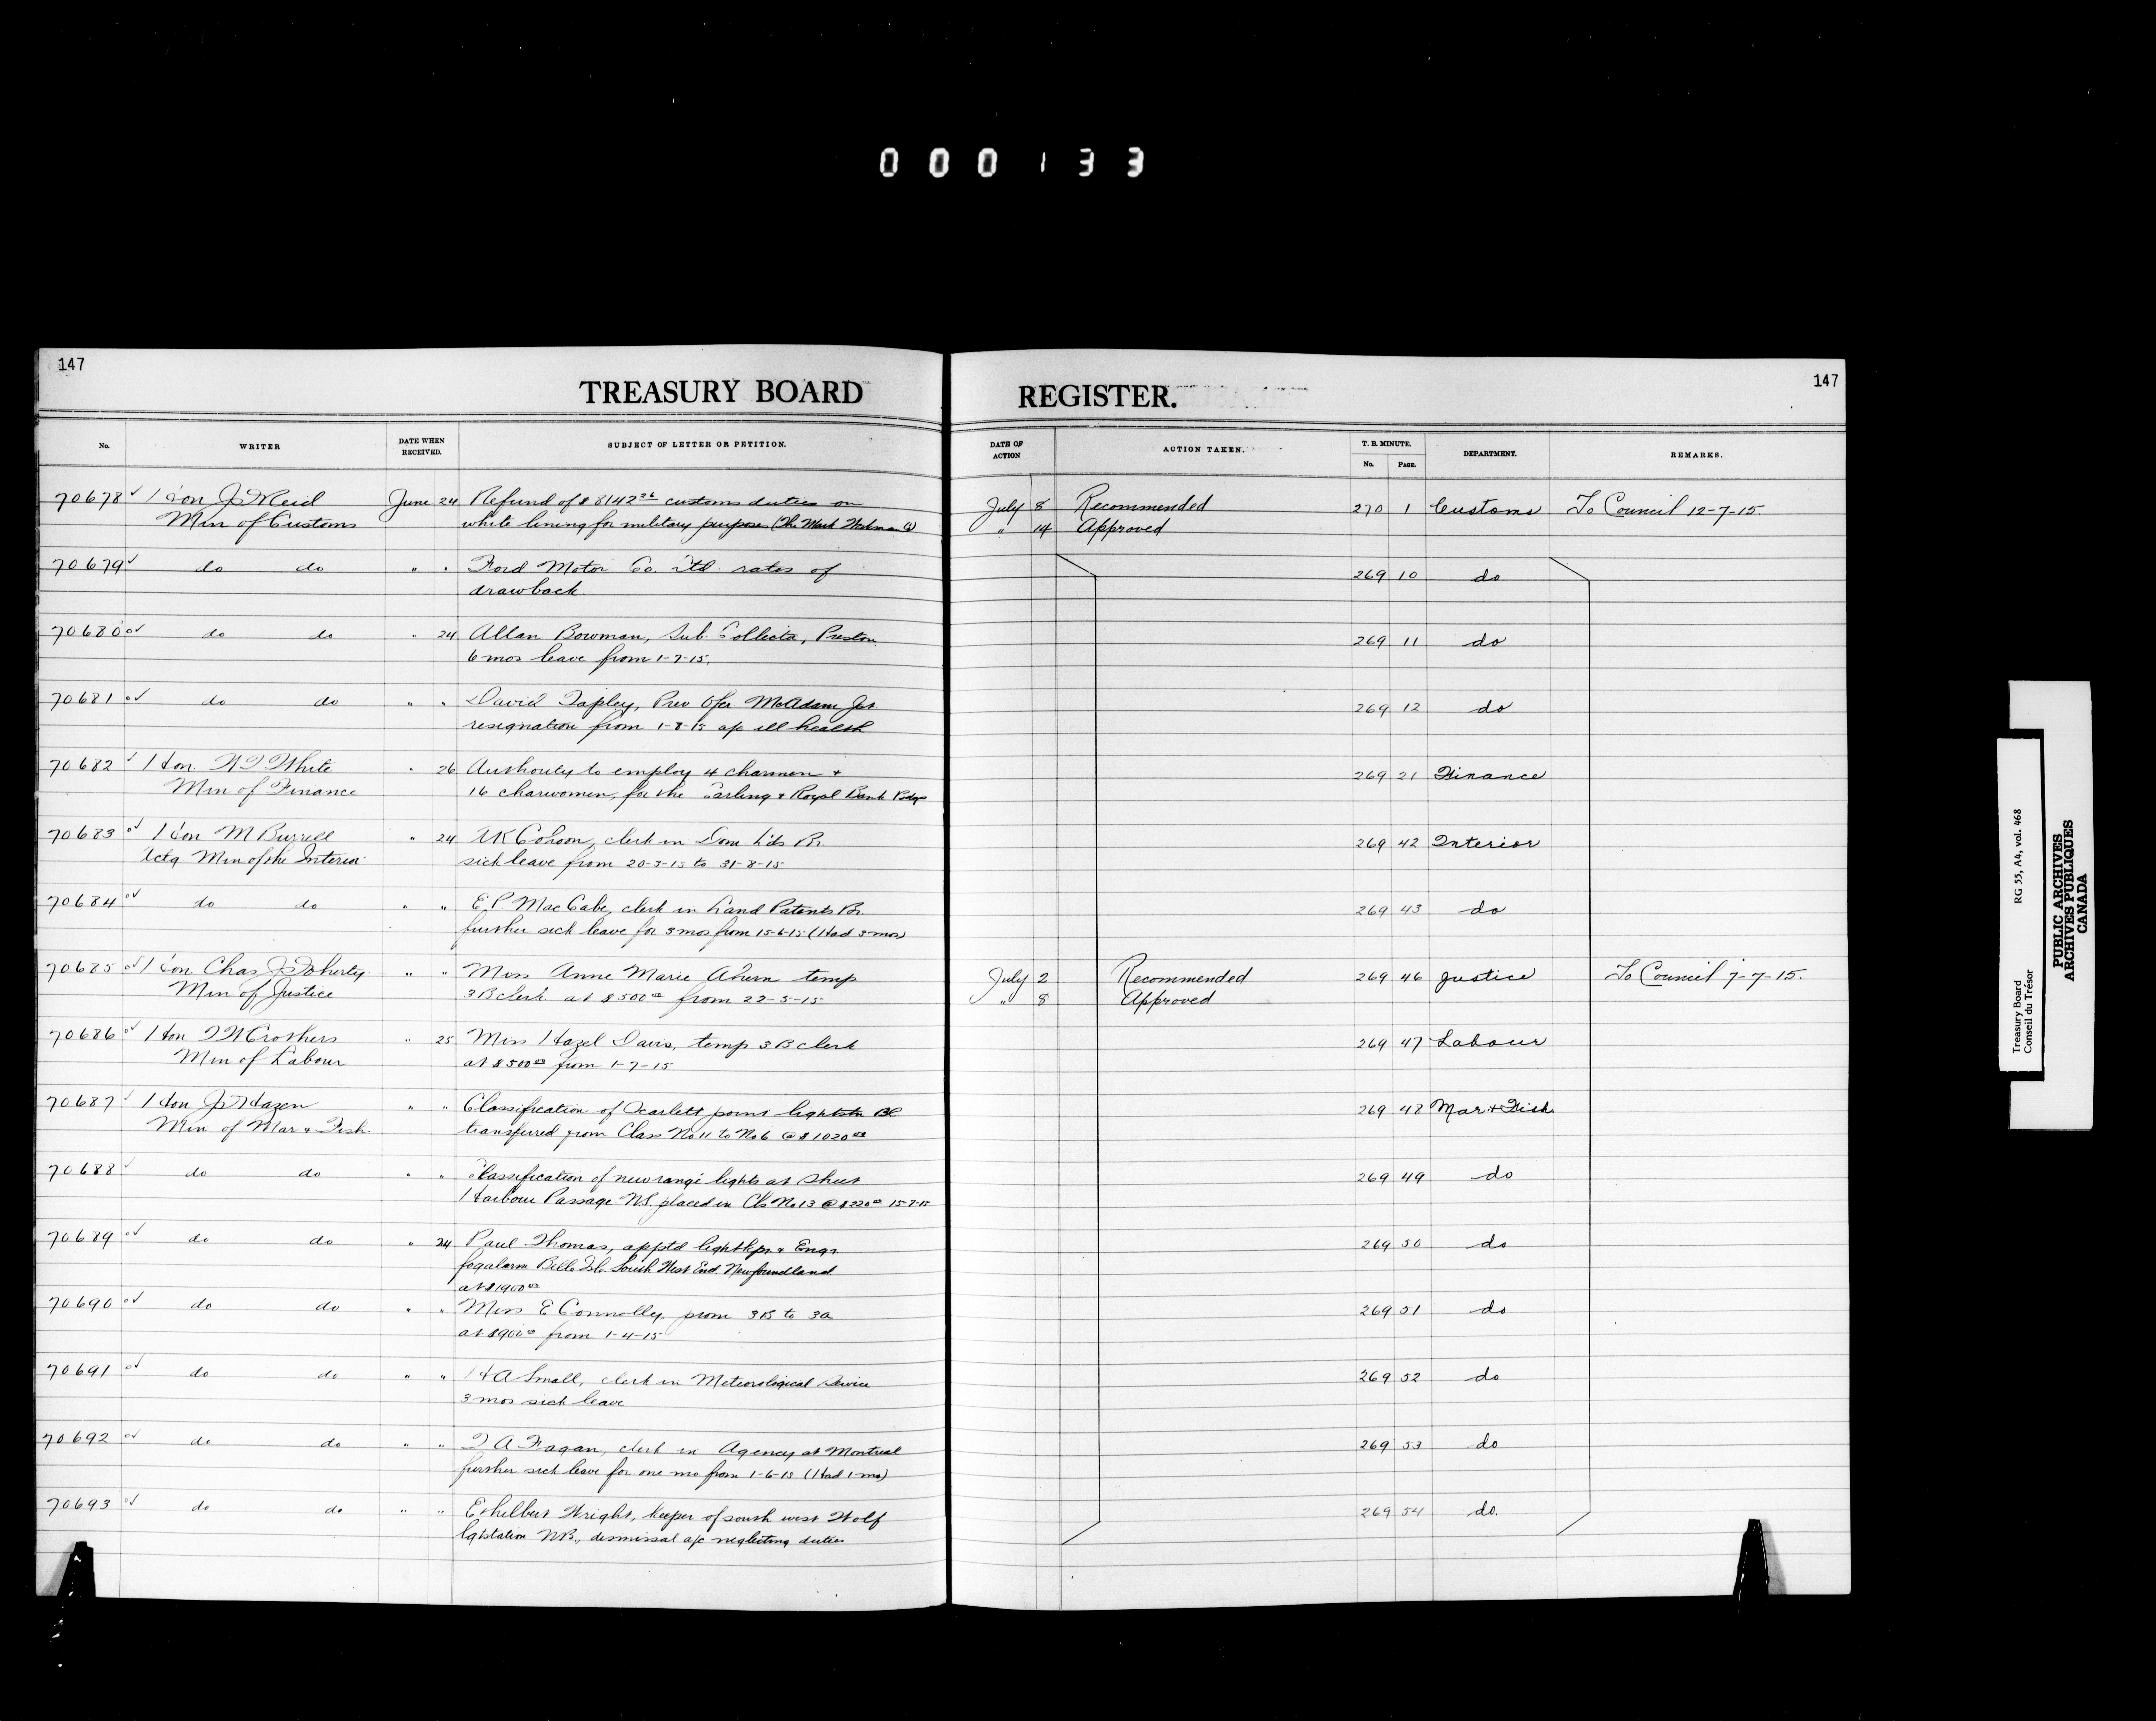 000133
147
TREASURY BOARD REGISTER.
147
No. WRITER DATE WHEN RECEIVED. SUBJECT OF LETTER OR PETITION. DATE OF ACTION ACTION TAKEN. T. B. MINUTE. No. PAGE. DEPARTMENT. REMARKS.
70678 Hon J Reid June 24 Refund of $8142 customs duties on July 8 Recommended 270 1 Customs To Council 12-7-15.
Min of Customs white lining for military purposes (The Mark Co) " 14 Approved
70679 do do " " Ford Motor Co. Ltd. rates of 269 10 do
drawback
70680 do do " 24 Allan Bowman, Sub. Collector, Preston 269 11 do
6 mos leave from 1-7-15.
70681 do do " " David Tapley, Prev Ofcr McAdam Jct 269 12 do
resignation from 1-8-15 a/c ill health
70682 Hon. W T White " 26 Authority to employ 4 charmen + 269 21 Finance
Min of Finance 16 charwomen, for the Carling & Royal Bank Bldgs
70683 Hon M Burrell " 24 clerk in Dom L'ds Br. 269 42 Interior
Actg Min of the Interior sick leave from 20-5-15 to 31-8-15
70684 do do " " E.P. MacCabe, clerk in Land Patents Br. 269 43 do
further sick leave for 3 mos from 15-6-15 (Had 3 mos)
70685 Hon. Chas J Doherty " " Miss Anne Marie Ahern temp July 2 Recommended 269 46 Justice To Council 7-7-15.
Min of Justice 3B clerk at $500 00 from 22-5-15 " 8 Approved
70686 Hon T W Crothers " 25 Miss Hazel Davis, temp 3B clerk 269 47 Labour
Min of Labour at $500 00 from 1-7-15
70687 Hon J D Hazen " " Classification of Scarlett point lightstn BC 269 48 Mar. & Fish.
Min of Mar & Fish. transferred from Class No 11 to No 6 @ $1020 00
70688 do do " " Classification of new range lights at Sheet 269 49 do
Harbour Passage N.S. placed in Cls No 13 @ $220 00 15-7-15
70689 do do " 24 Paul Thomas, apptd lightkpr & Engr 269 50 do
fogalarm Belle Isle South West End Newfoundland
at $1900 00
70690 do do " " Miss E Connolly. prom 3B to 3A 269 51 do
at $900 00 from 1-4-15
70691 do do " " H A Small, clerk in Meteorological Service 269 52 do
3 mos sick leave
70692 do do " " T A Fagan, clerk in Agency at Montreal 269 53 do
further sick leave for one mo from 1-6-15 (Had 1 mo)
70693 do do " " Ethelbert Wright, keeper of south west Wolf 269 54 do.
lgtstation N.B., dismissal a/c neglecting duties
Treasury Board RG 55, A4, vol. 468
Conseil du Trésor
PUBLIC ARCHIVES
ARCHIVES PUBLIQUES
CANADA